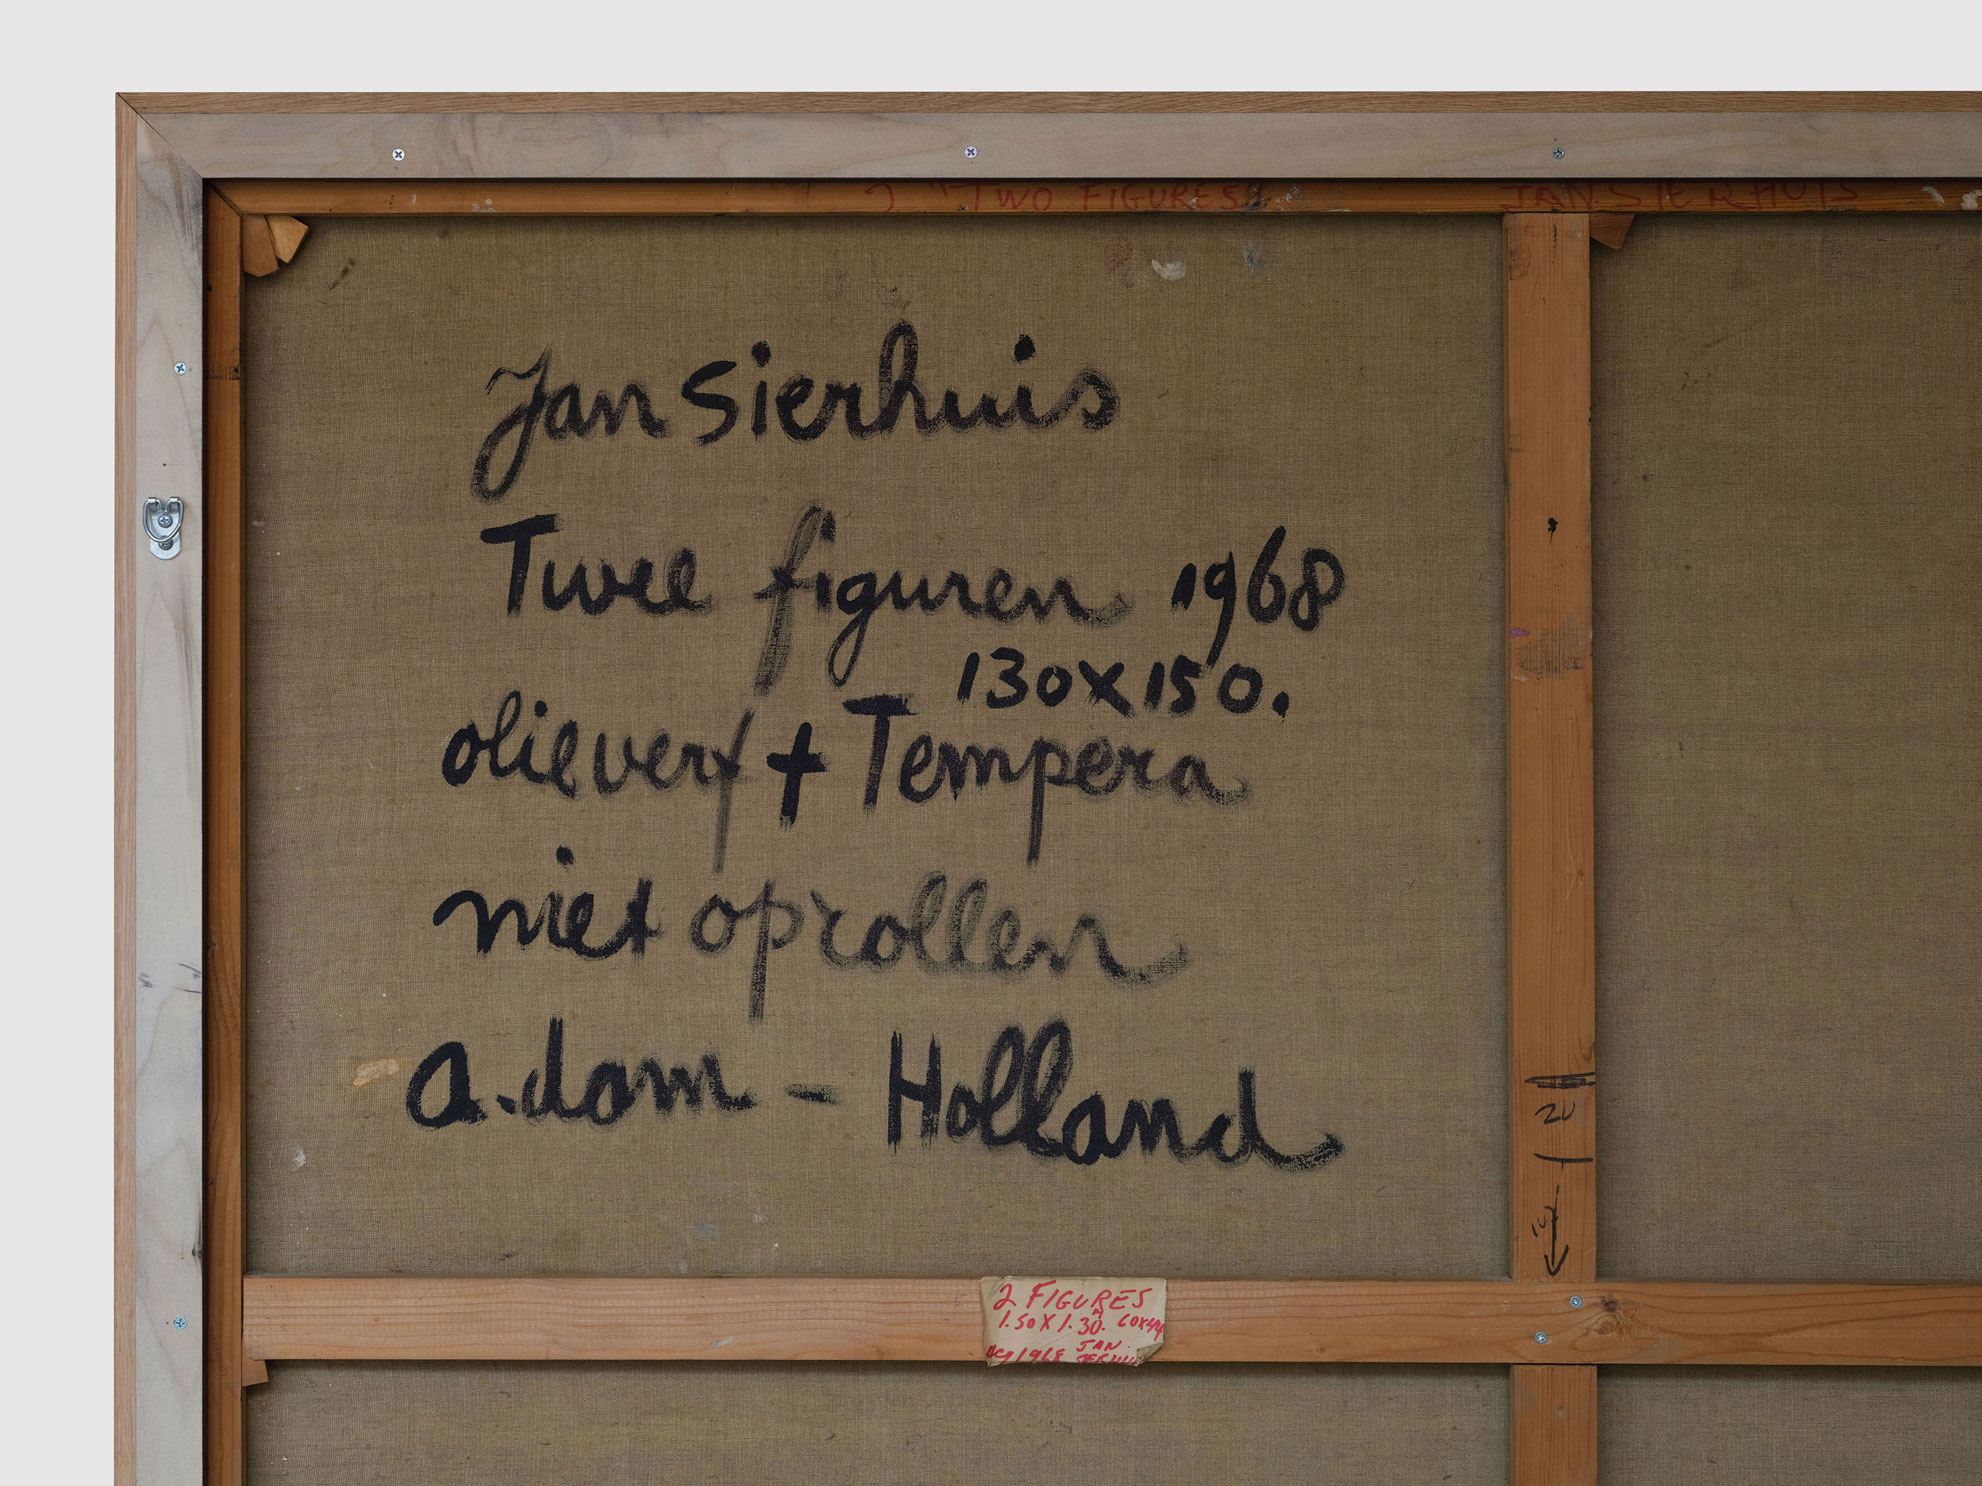 2 "TWO FIGURES" JAN SIERHUIS
Jan Sierhuis
Twee figuren 1968
130x150.
olieverf + Tempera
niet oprollen
a.dam - Holland
20
10
2 FIGURES
1.50 X 1.30. 60x44
1968 JAN